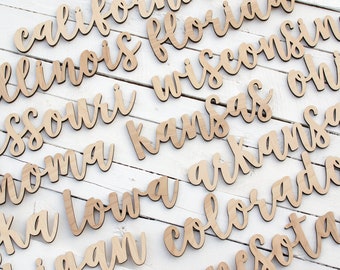 california florida
illinois wisconsin
ohi
ssouri kansas
noma arkansas
ka Iowa colorado
igan nesota